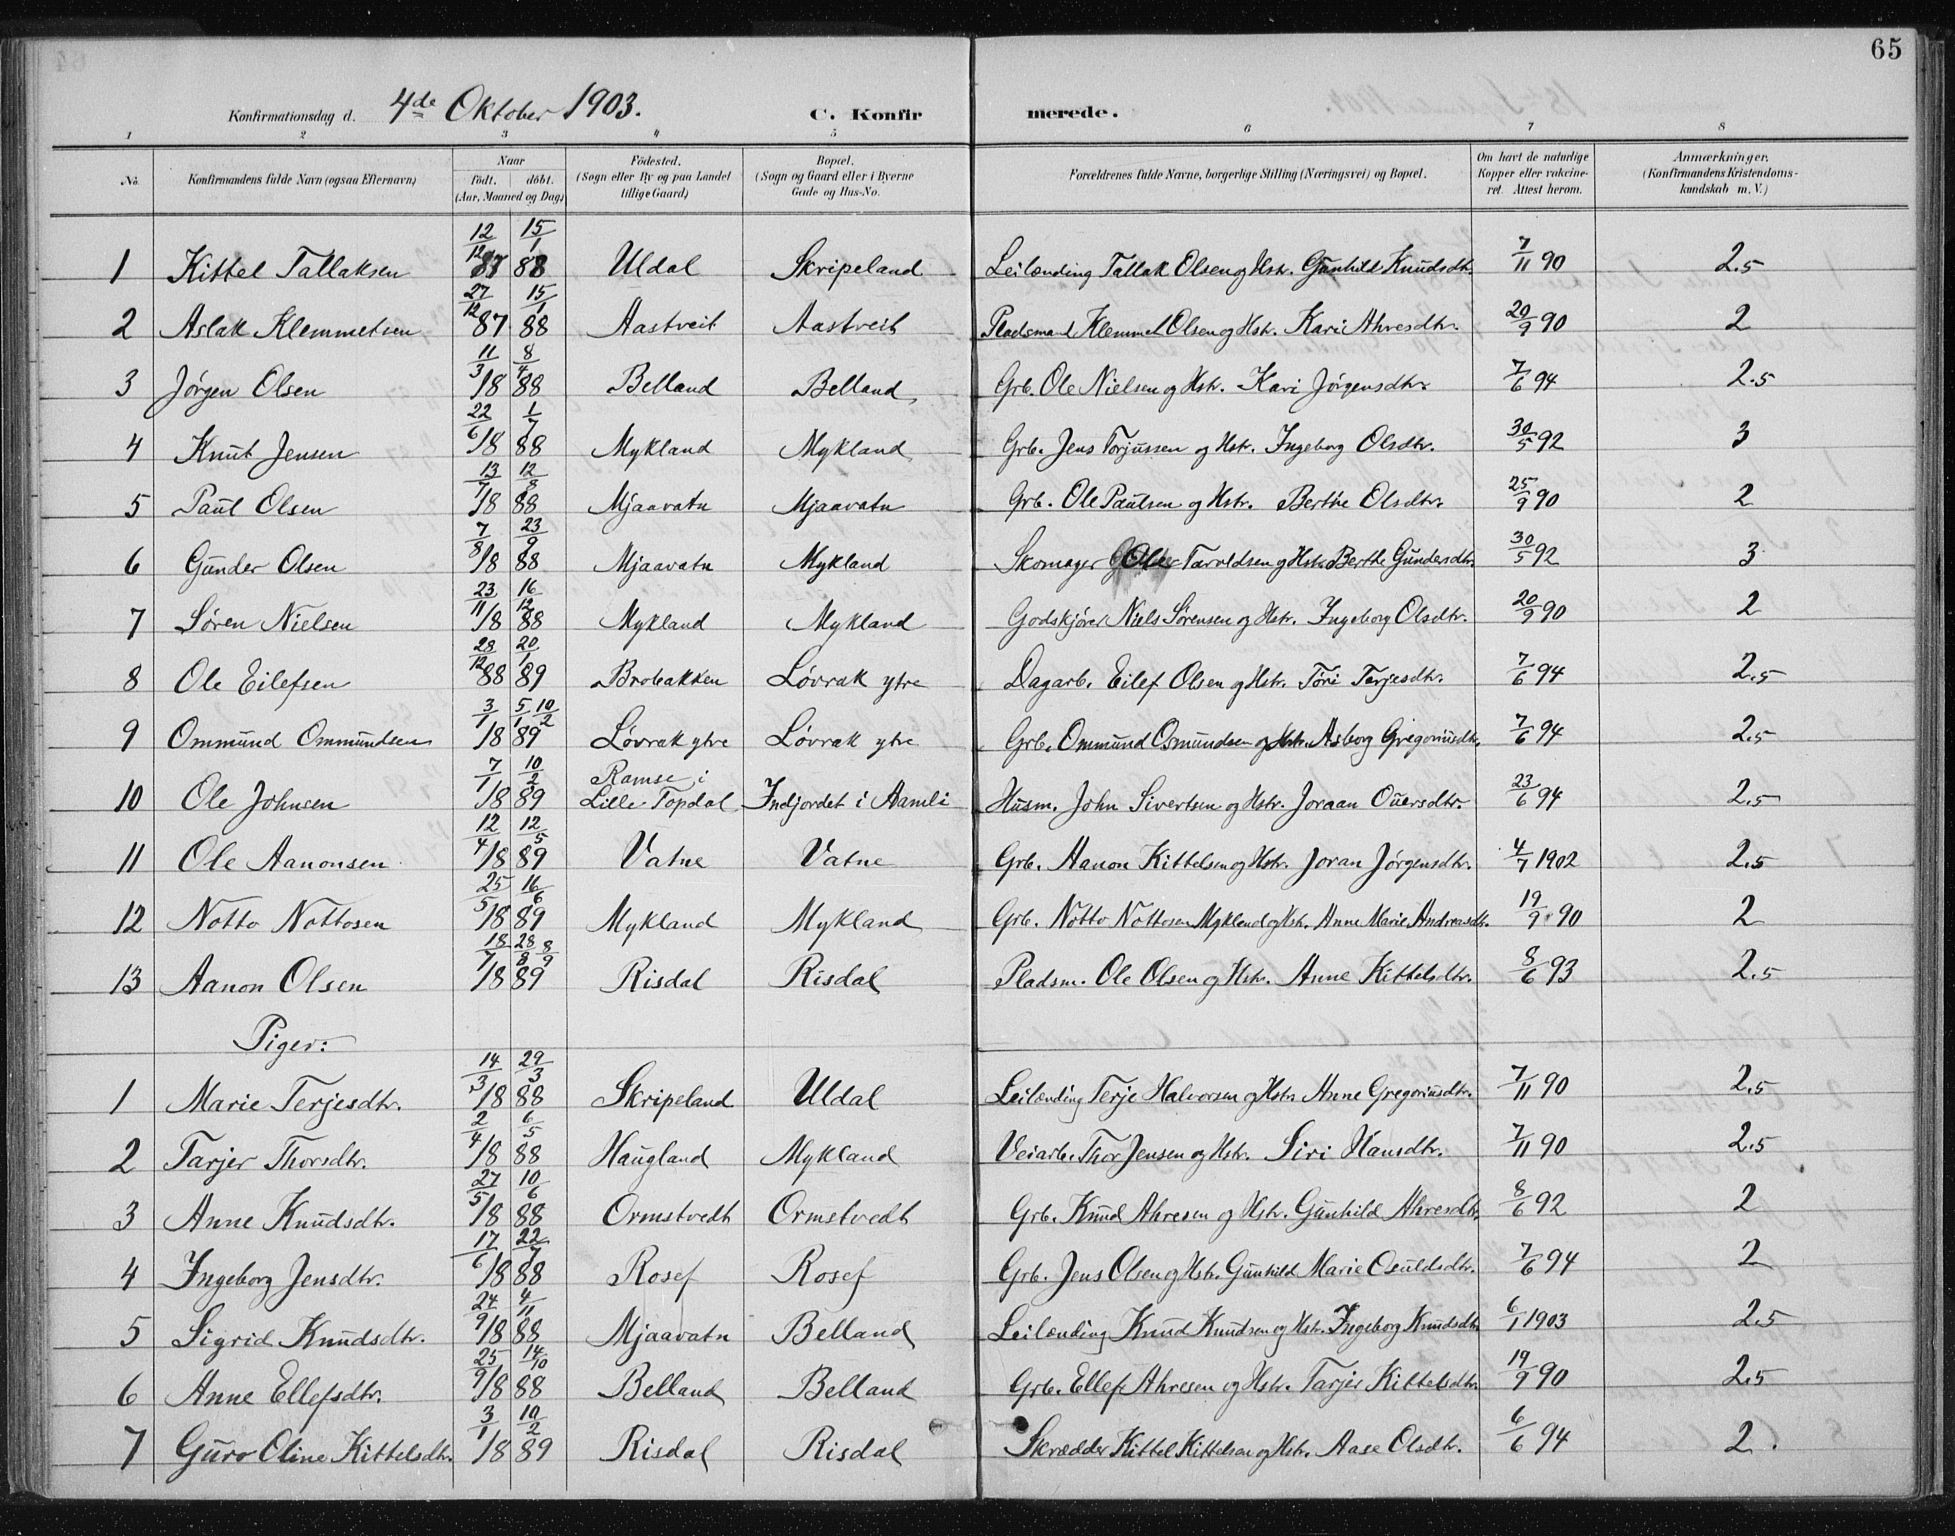 65
Konfirmationsdag d. 4de Oktober 1903. C. Konfirmerede.
1 2 3 4 5 6 7 8
No. Konfirmandens fulde Navn (ogsaa Efternavn) Naar født. døbt. (Aar, Maaned og Dag) Fødested. (Sogn eller By og paa Landet tillige Gaard) Bopæl. (Sogn og Gaard eller i Byerne Gade og Hus-No. Forældrenes fulde Navne, borgerlige Stilling (Næringsvei) og Bopæl. Om havt de naturlige Kopper eller vakcineret. Attest herom. Anmærkninger. (Konfirmandens Kristendomskundskab m. V.)
1 Kittel Tallaksen 12/12 87 15/1 88 Uldal Skripeland Leilænding Tallak Olsen og Hstr. Gunhild Knudsdtr. 7/11 90 2.5
2 Aslak Klemmetsen 27/12 87 15/1 88 Aastveit Aastveit Pladsmand Klemmet Olsen og Hstr. Kari Ahresdtr. 20/9 90 2
3 Jørgen Olsen 11/3 18 8/4 88 Belland Belland Grb. Ole Nielsen og Hstr. Kari Jørgensdtr. 7/6 94 2.5
4 Knut Jensen 22/6 18 1/7 88 Mykland Mykland Grb. Jens Torjussen og Hstr. Ingeborg Olsdtr. 30/5 92 3
5 Paul Olsen 13/7 18 12/8 88 Mjaavatn Mjaavatn Grb. Ole Paulsen og Hstr. Berthe Olsdtr. 25/9 90 2
6 Gunder Olsen 7/8 18 23/9 88 Mjaavatn Mykland Skomager Ole Tarvldsen og Hstr. Berthe Gundersdtr. 30/5 92 3
7 Søren Nielsen 23/11 18 16/12 88 Mykland Mykland Godskjører Niels Sørensen og Hstr. Ingeborg Olsdtr. 20/9 90 2
8 Ole Eilefsen 28/12 88 20/1 89 Brobakken Løvrak ytre Dagarb. Eilef Olsen og Hstr. Töri Terjesdtr. 7/6 94 2.5
9 Ommund Ommundsen 3/1 18 5/1 10/2 89 Løvrak ytre Løvrak ytre Grb. Ommund Osmundsen og Hstr. Asborg Gregoriusdtr. 7/6 94 2.5
10 Ole Johnsen 7/1 18 10/2 89 Ramse i Lille Topdal Indjordet i Aamli Husm. John Sivertsen og Hstr. Joraan Ouersdtr. 23/6 94 2.5
11 Ole Aanonsen 12/4 18 12/5 89 Vatne Vatne Grb. Aanon Kittelsen og Hstr. Joran Jørgensdtr. 4/7 1902 2.5
12 Notto Nottosen 25/5 18 16/6 89 Mykland Mykland Grb. Notto Nottosen Mykland og Hstr. Anne Marie Andreasdtr. 19/9 90 2
13 Aanon Olsen 18/7 18 28/8 8/9 89 Risdal Risdal Pladsm. Ole Olsen og Hstr. Anne Kittelsdtr. 8/6 93 2.5
Piger:
1 Marie Terjesdtr. 14/3 18 29/3 88 Skripeland Uldal Leilænding Terje Halvorsen og Hstr. Anne Gregoriusdtr. 7/11 90 2.5
2 Tarjer Thorsdtr. 2/4 18 6/5 88 Haugland Mykland Veiarb. Thor Jensen og Hstr. Siri Hansdtr. 7/11 90 2.5
3 Anne Knudsdtr. 27/5 18 10/6 88 Ormstvedt Ormstvedt Grb. Knud Ahresen og Hstr. Gunhild Ahresdtr. 8/6 92 2
4 Ingeborg Jensdtr. 17/6 18 22/7 88 Rosef Rosef Grb. Jens Olsen og Hstr. Gunhild Marie Osuldsdtr. 7/6 94 2
5 Sigrid Knudsdtr. 24/9 18 4/11 88 Mjaavatn Belland Leilænding Knud Knudsen og Hstr. Ingeborg Knudsdtr. 6/1 1903 2.5
6 Anne Ellefsdtr. 25/9 18 14/10 88 Belland Belland Grb. Ellef Ahresen og Hstr. Tarjer Kittelsdtr. 19/9 90 2.5
7 Guro Oline Kittelsdtr. 3/1 18 10/2 89 Risdal Risdal Skrædder Kittel Kittelsen og Hstr. Aase Olsdtr. 6/6 94 2.